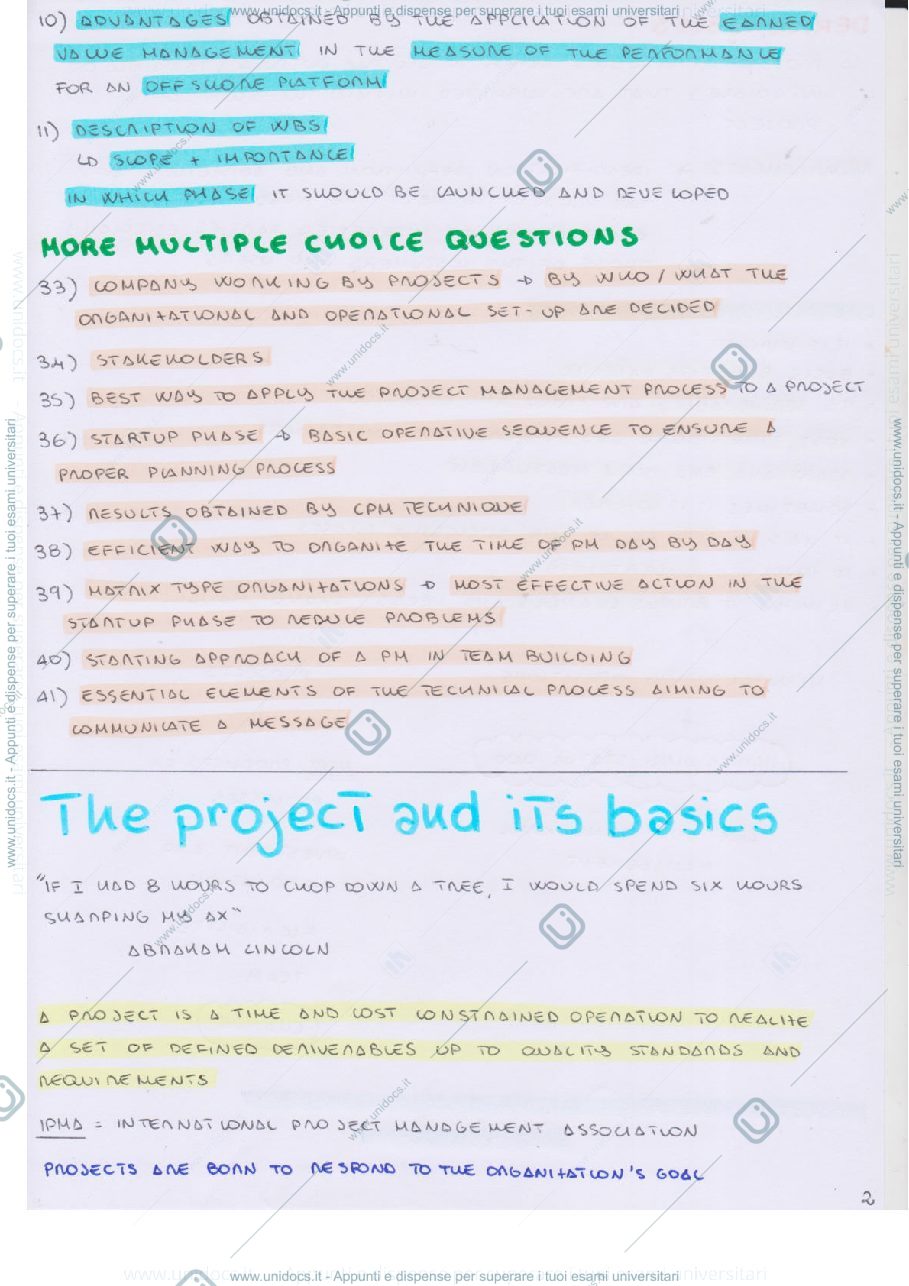 www.unidocs.it - Appunti e dispense per superare i tuoi esami universitari
10) ADVANTAGES OBTAINED BY THE APPLICATION OF THE EARNED
VALUE MANAGEMENT IN THE MEASURE OF THE PERFORMANCE
FOR AN OFFSHORE PLATFORM
11) DESCRIPTION OF WBS
↳ SCOPE + IMPORTANCE
IN WHICH PHASE IT SHOULD BE LAUNCHED AND DEVELOPED
MORE MULTIPLE CHOICE QUESTIONS
33) COMPANY WORKING BY PROJECTS → BY WHO / WHAT THE
ORGANIZATIONAL AND OPERATIONAL SET-UP ARE DECIDED
34) STAKEHOLDERS
35) BEST WAY TO APPLY THE PROJECT MANAGEMENT PROCESS TO A PROJECT
36) STARTUP PHASE → BASIC OPERATIVE SEQUENCE TO ENSURE A
PROPER PLANNING PROCESS
37) RESULTS OBTAINED BY CPM TECHNIQUE
38) EFFICIENT WAY TO ORGANIZE THE TIME OF PM DAY BY DAY
39) MATRIX TYPE ORGANIZATIONS → MOST EFFECTIVE ACTION IN THE
STARTUP PHASE TO REDUCE PROBLEMS
40) STARTING APPROACH OF A PM IN TEAM BUILDING
41) ESSENTIAL ELEMENTS OF THE TECHNICAL PROCESS AIMING TO
COMMUNICATE A MESSAGE
The project and its basics
"IF I HAD 8 HOURS TO CHOP DOWN A TREE, I WOULD SPEND SIX HOURS
SHARPING MY AX"
ABRAHAM LINCOLN
A PROJECT IS A TIME AND COST CONSTRAINED OPERATION TO REALIZE
A SET OF DEFINED DERIVERABLES UP TO QUALITY STANDARDS AND
REQUIREMENTS
IPMA = INTERNATIONAL PROJECT MANAGEMENT ASSOCIATION
PROJECTS ARE BORN TO RESPOND TO THE ORGANIZATION'S GOAL
2
www.unidocs.it - Appunti e dispense per superare i tuoi esami universitari